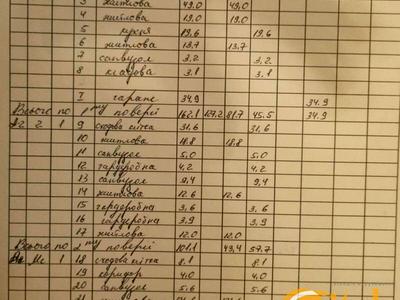 3 житлова 49.0 49.0
4 житлова 19.0 19.0
5 кухня 19.6 19.6
6 житлова 13.7 13.7
7 санвузол 3.2 3.2
8 кладова 3.8 3.8
I гараж 34.9 34.9
Всього по 1 му поверсі 162.1 127.2 81.7 45.5 34.9
2 1 9 сходова клітка 31.6 31.6
10 житлова 18.8 18.8
11 санвузол 5.0 5.0
12 гардеробна 4.2 4.2
13 санвузол 9,4 9,4
14 житлова 12.6 12.6
15 гардеробна 3.6 3.6
16 гардеробна 3.9 3.9
17 житлова 12.0 12.0
Всього по 2 му поверсі 101.1 43,4 57.7
1 18 сходова клітка 8.1 8.1
19 коридор 4.0 4.0
20 санвузол 5.6 5.6
21